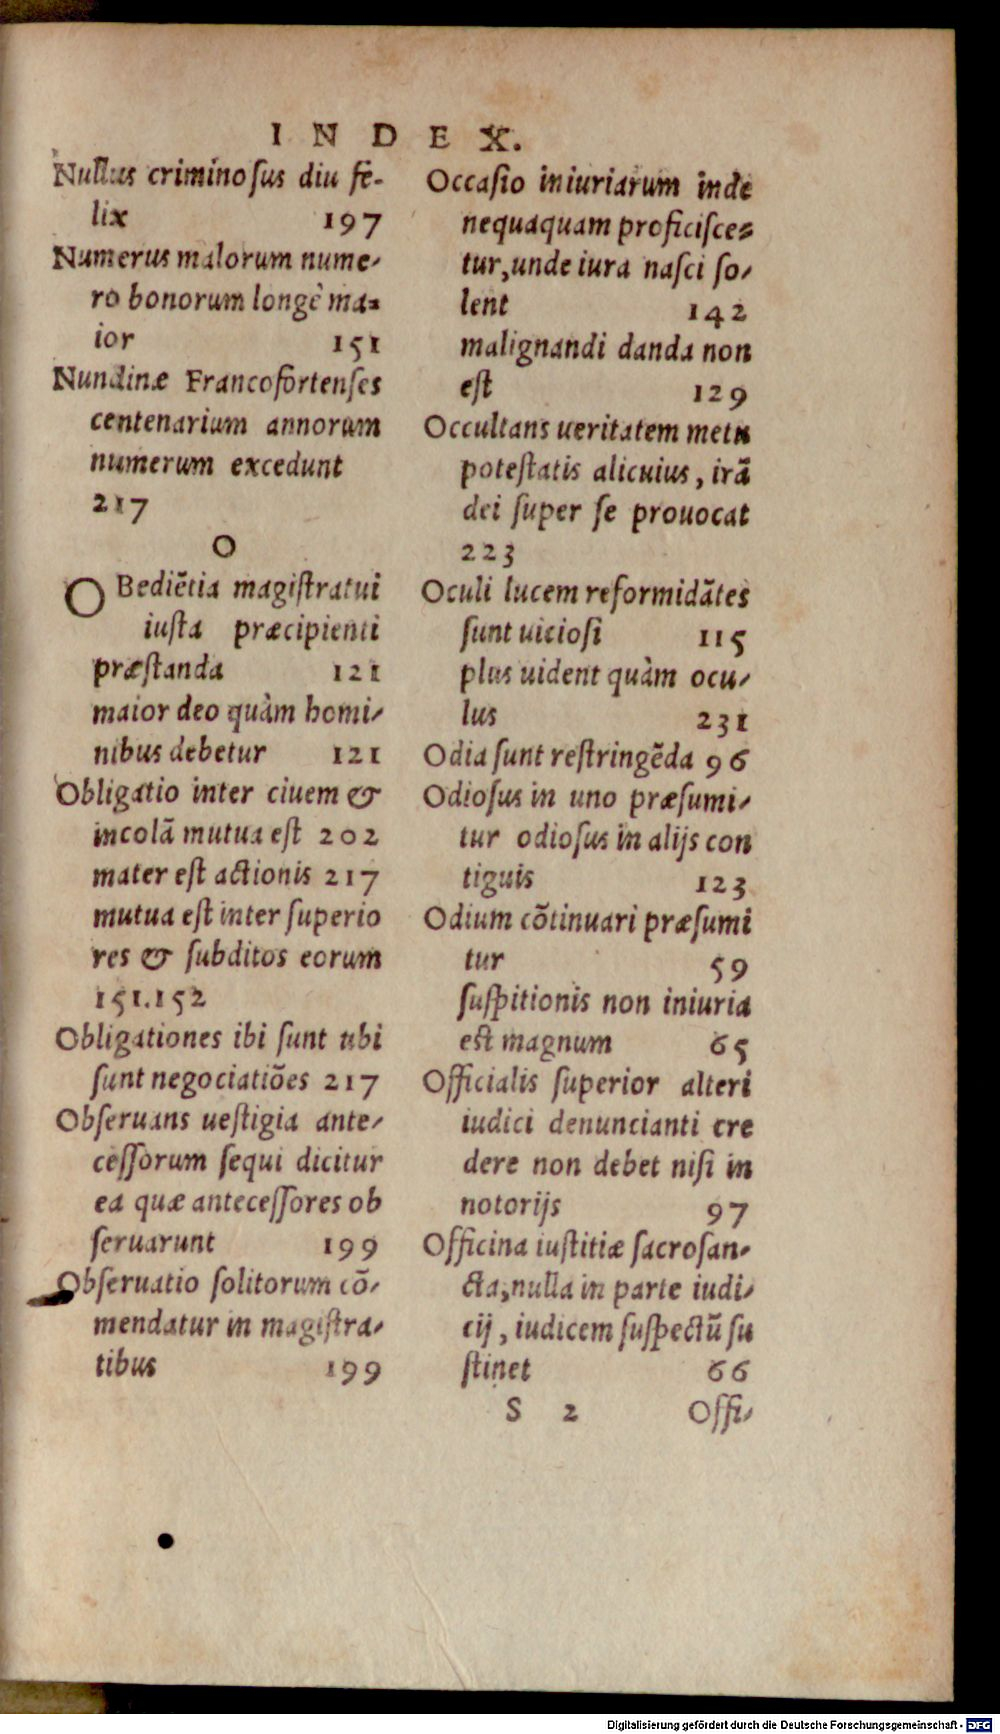 INDEX.
Nullus criminosus diu fe-
lix 197
Numerus malorum nume-
ro bonorum longè ma-
ior 151
Nundinæ Francofortenses
centenarium annorum
numerum excedunt
217
O
OBediẽtia magistratui
iusta præcipienti
præstanda 121
maior deo quàm homi-
nibus debetur 121
Obligatio inter ciuem &
incolã mutua est 202
mater est actionis 217
mutua est inter superio
res & subditos eorum
151.152
Obligationes ibi sunt ubi
sunt negociatiões 217
Obseruans uestigia ante-
cessorum sequi dicitur
ea quæ antecessores ob
seruarunt 199
Obseruatio solitorum cõ-
mendatur in magistra-
tibus 199
Occasio iniuriarum inde
nequaquam proficisce-
tur, unde iura nasci so-
lent 142
malignandi danda non
est 129
Occultans ueritatem metu
potestatis alicuius, irã
dei super se prouocat
223
Oculi lucem reformidãtes
sunt uiciosi 115
plus uident quàm ocu-
lus 231
Odia sunt restringẽda 96
Odiosus in uno præsumi-
tur odiosus in alijs con
tiguis 123
Odium cõtinuari præsumi
tur 59
suspitionis non iniuria
est magnum 65
Officialis superior alteri
iudici denuncianti cre
dere non debet nisi in
notorijs 97
Officina iustitiæ sacrosan-
cta, nulla in parte iudi-
cij, iudicem suspectũ su
stinet 66
S 2 Offi-
Digitalisierung gefördert durch die Deutsche Forschungsgemeinschaft - DFG